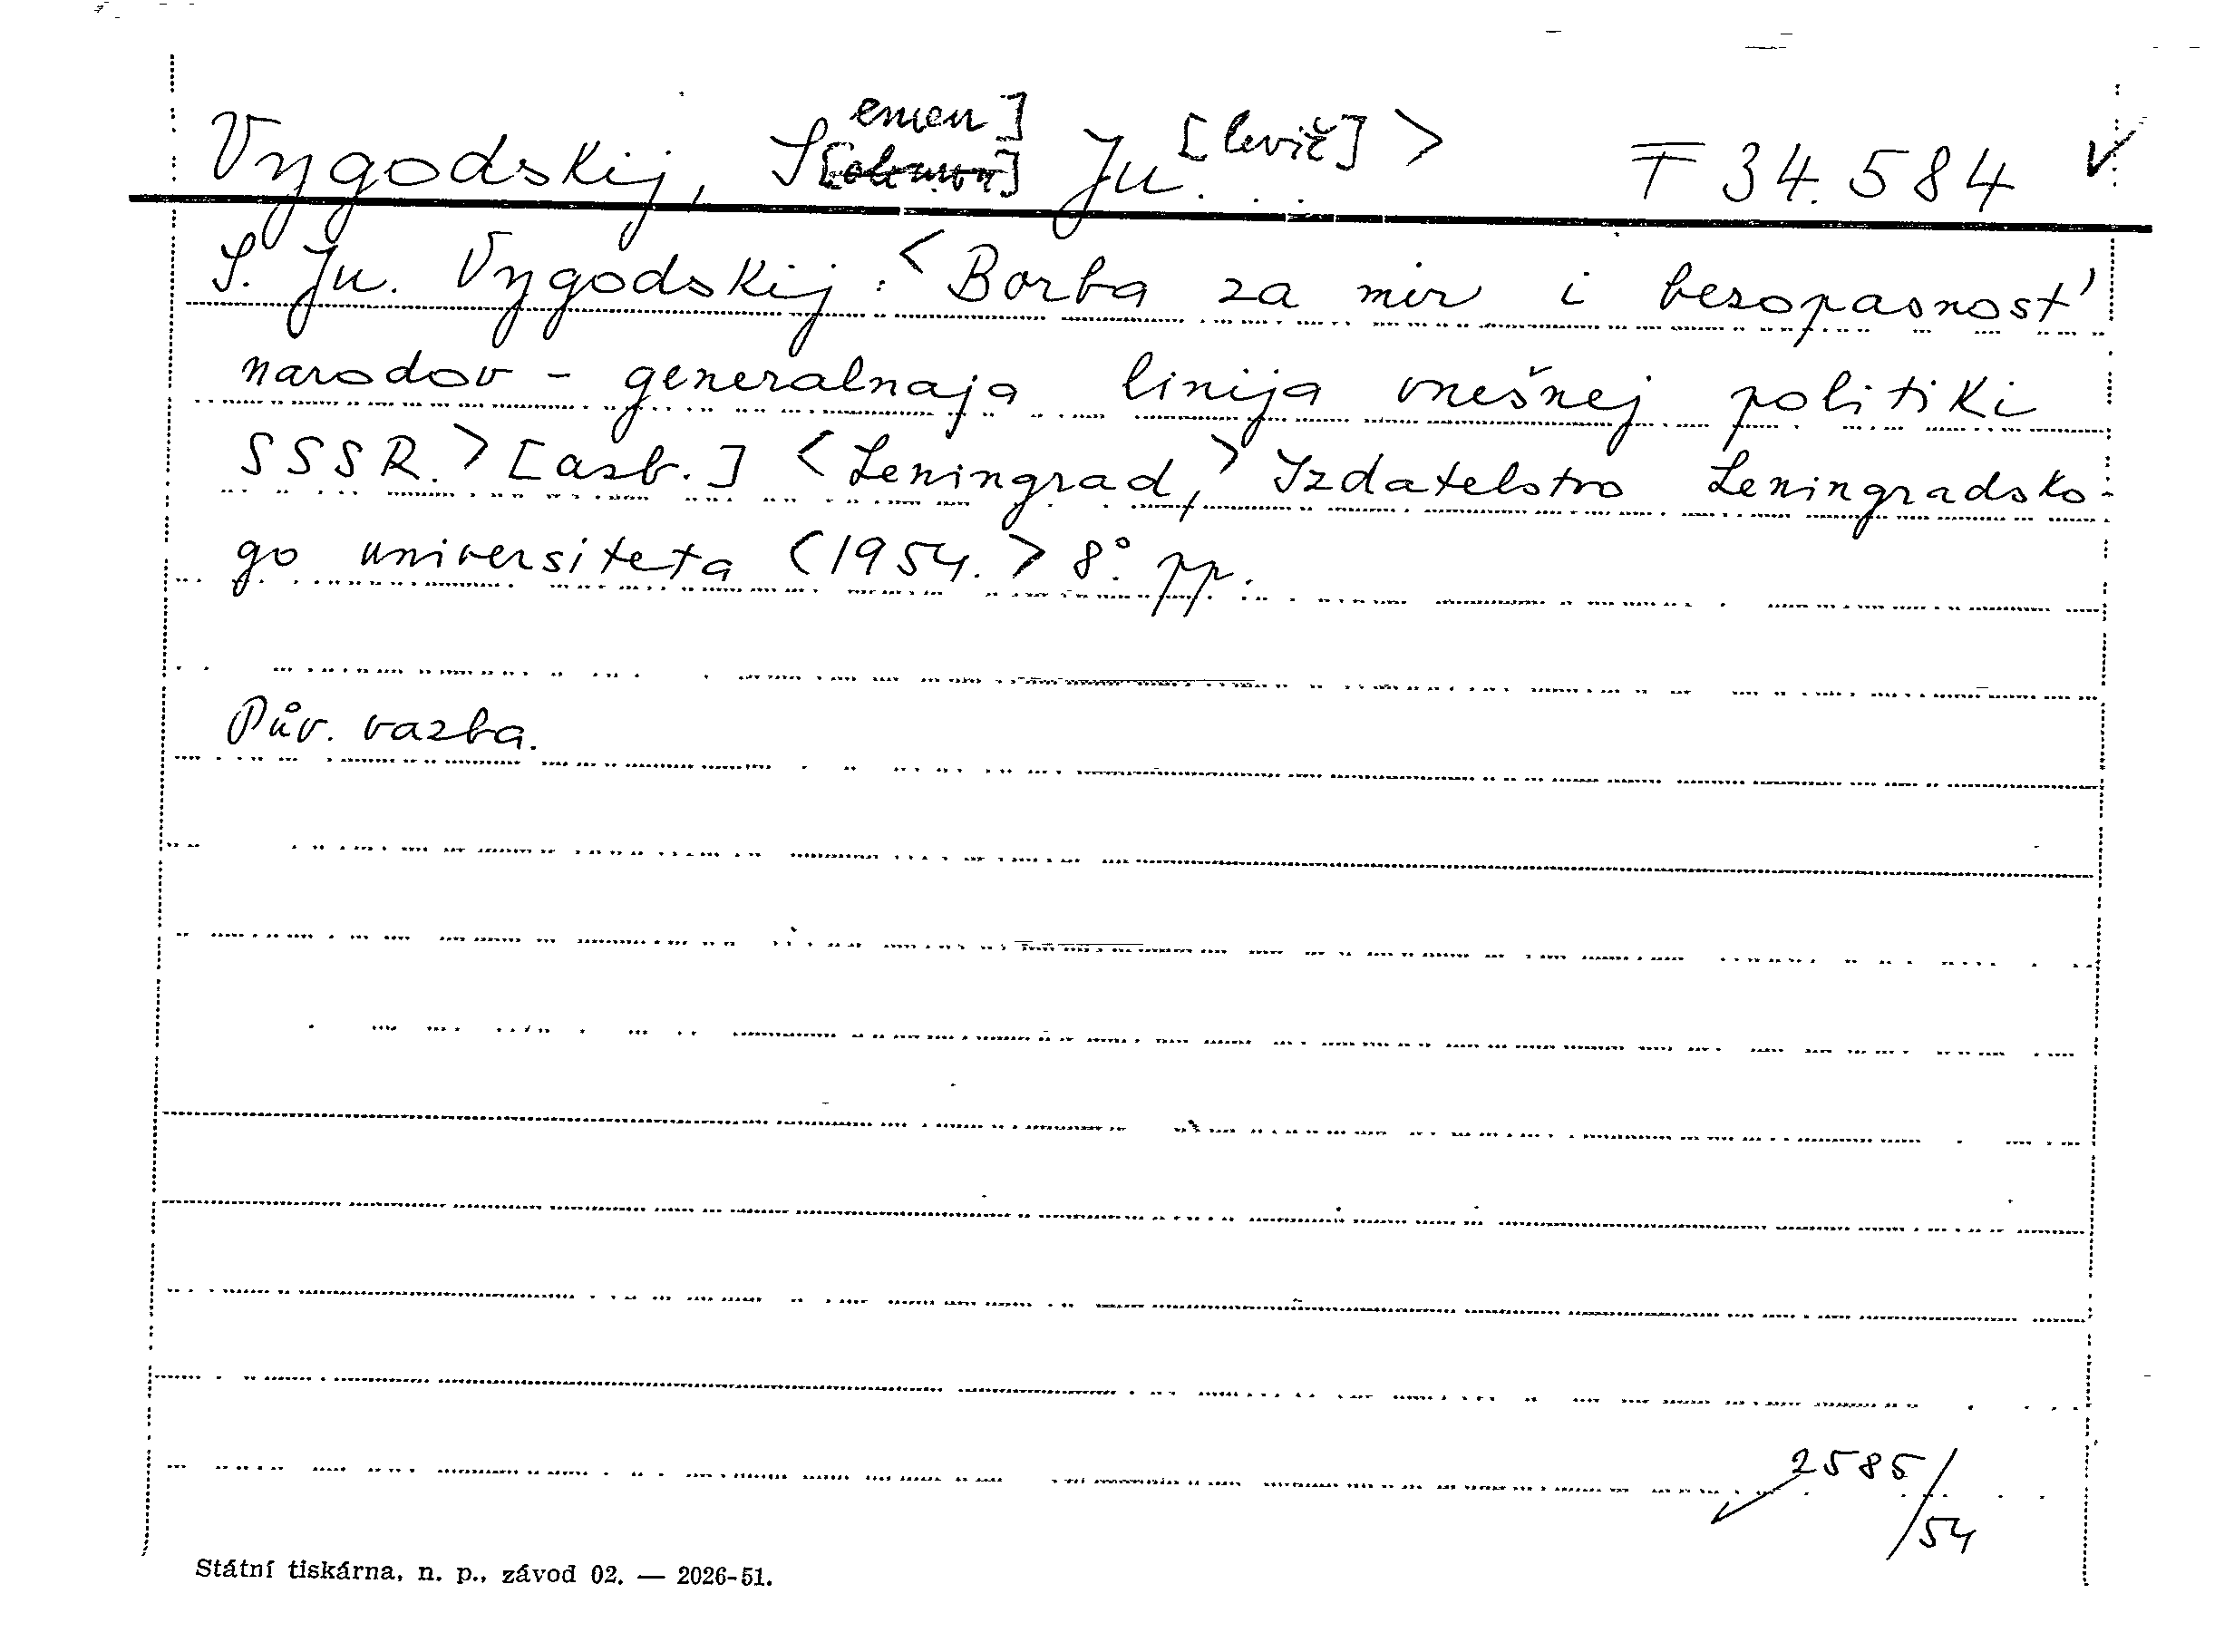 Vygodskij, S[emen] Ju.[levič] > F 34.584 V
S. Ju. Vygodskij: <Borba za mir i bezopasnost'
narodov - generalnaja linija vnešnej politiki
SSSR.> [azb.] <Leningrad,> Izdatelstvo Leningradsko-
go universiteta <1954.> 8°. pp.
Pův. vazba.
2585/54
Státní tiskárna, n. p., závod 02. — 2026-51.